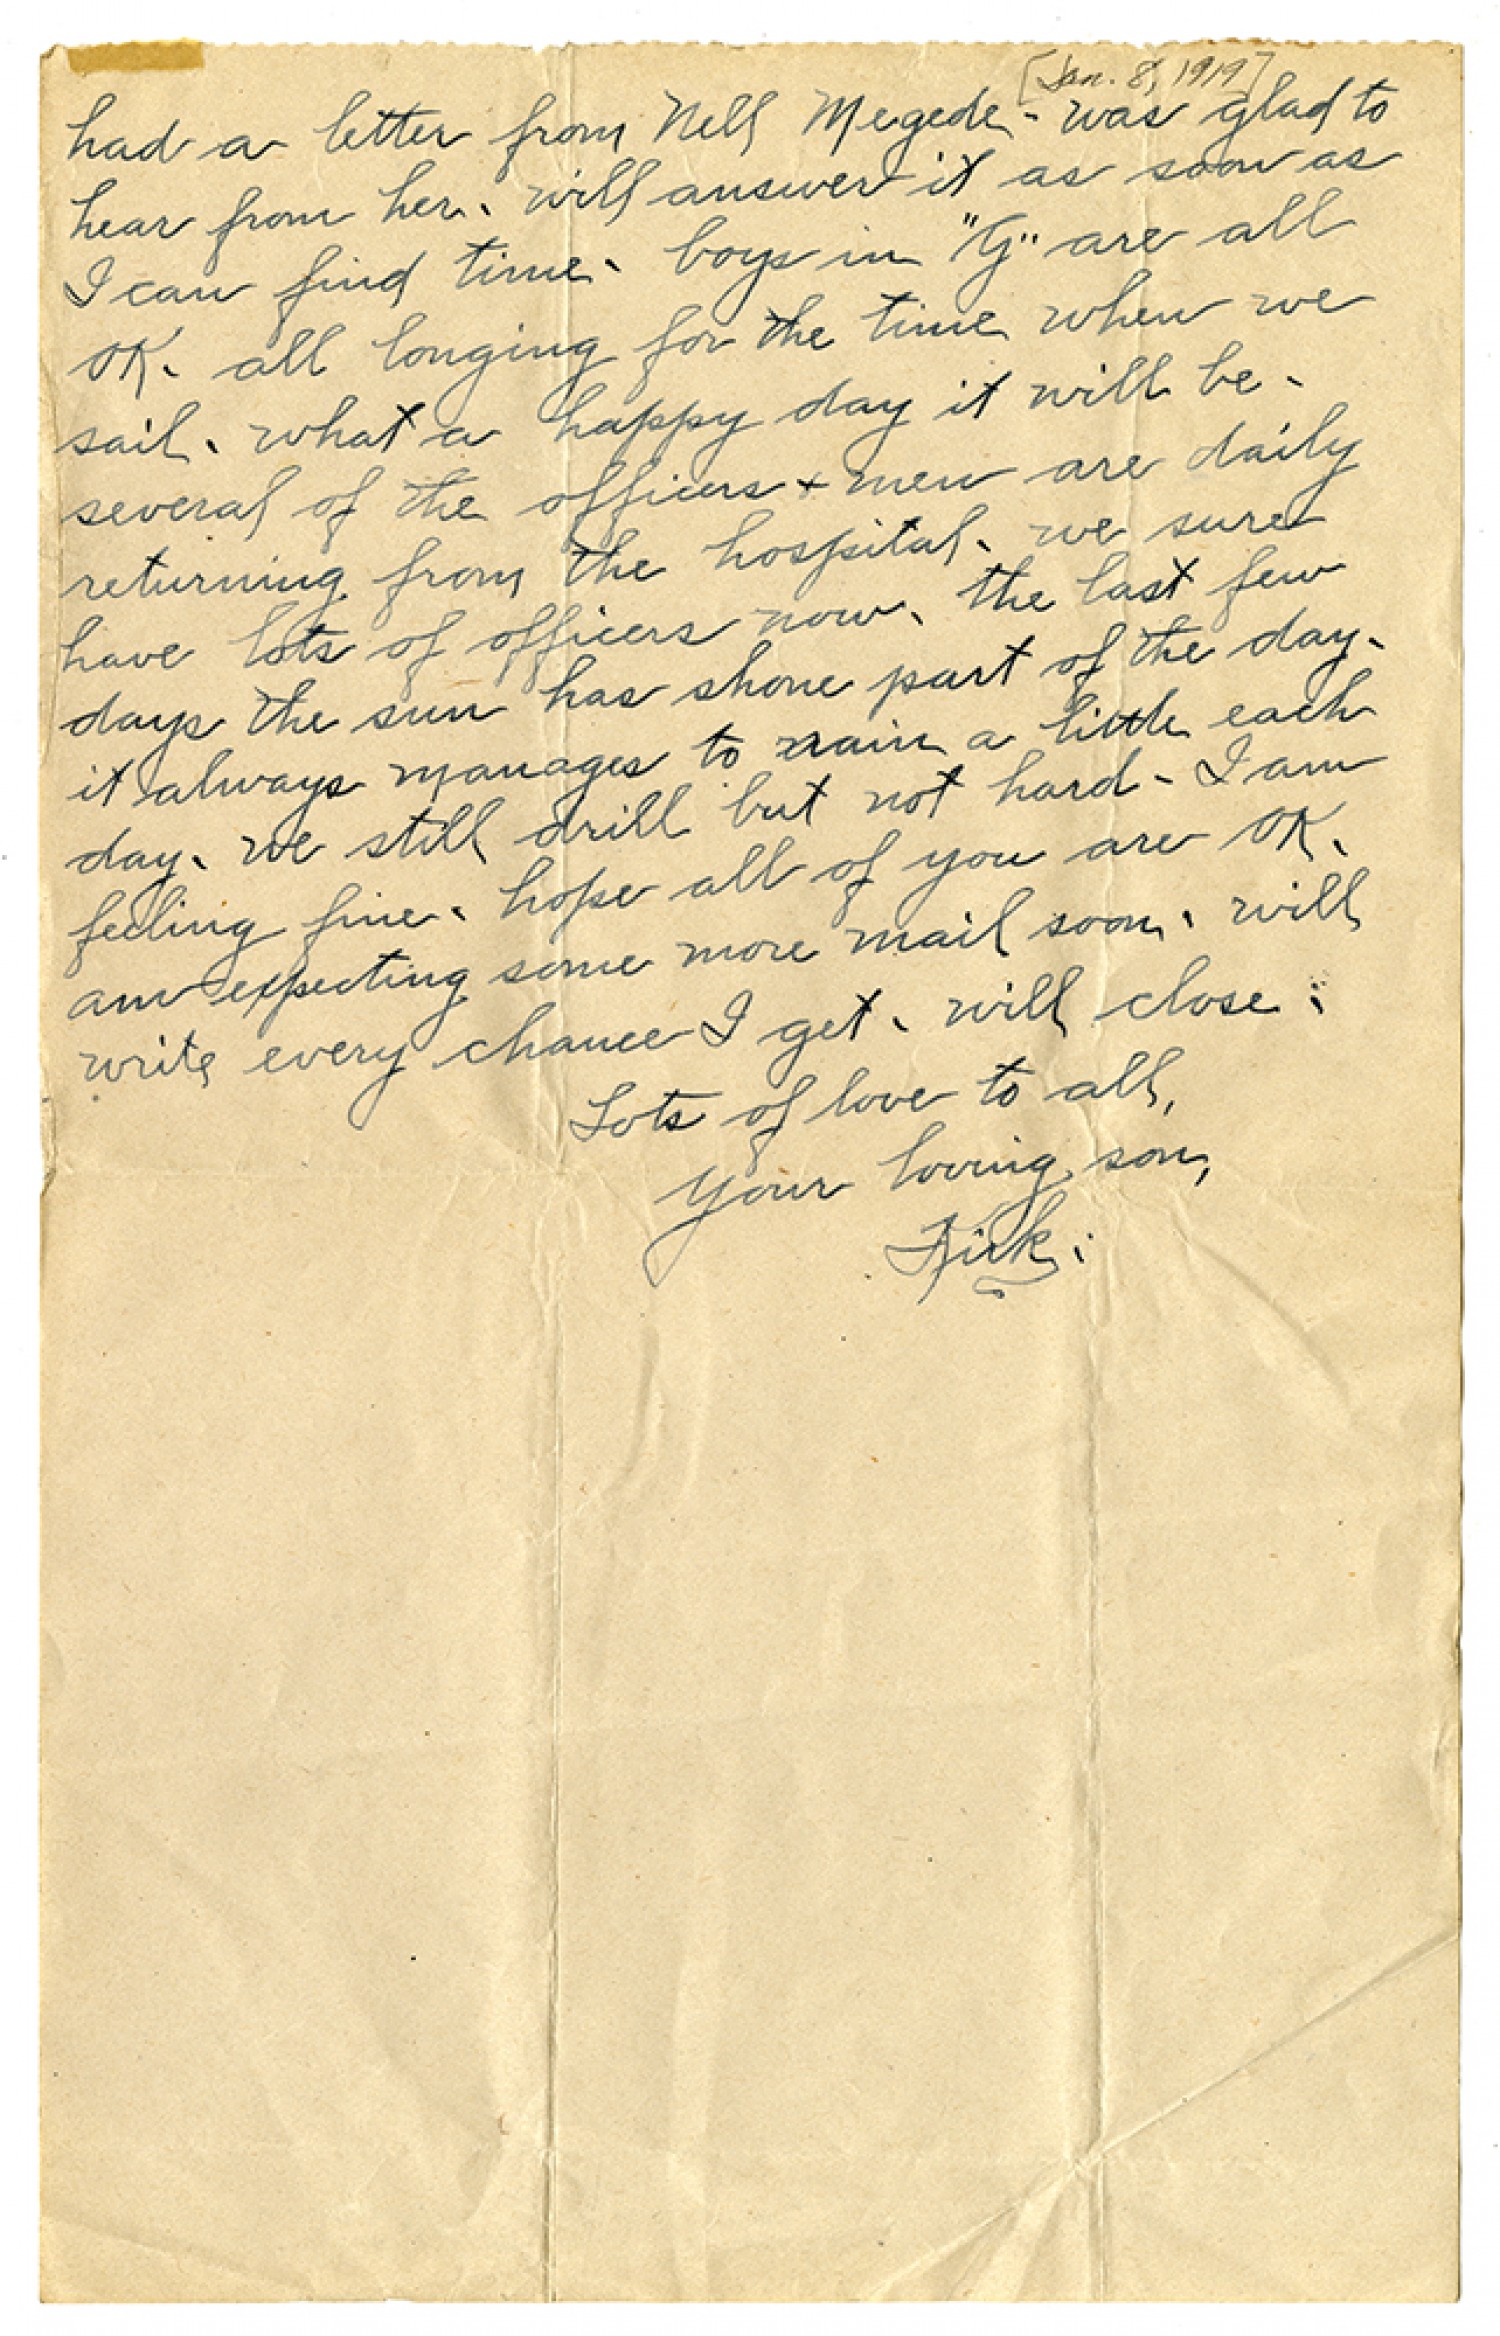 [Jan. 8, 1919]
had a letter from Nell Megede - was glad to
hear from her. will answer it as soon as
I can find time. boys in "G" are all
OK. all longing for the time when we
sail. what a happy day it will be.
several of the officers + men are daily
returning from the hospital. we sure
have lots of officers now. the last few
days the sun has shone part of the day.
it always manages to rain a little each
day. we still drill but not hard - I am
feeling fine. hope all of you are OK.
am expecting some more mail soon. will
write every chance I get. will close:
Lots of love to all,
Your loving son,
Kirk.